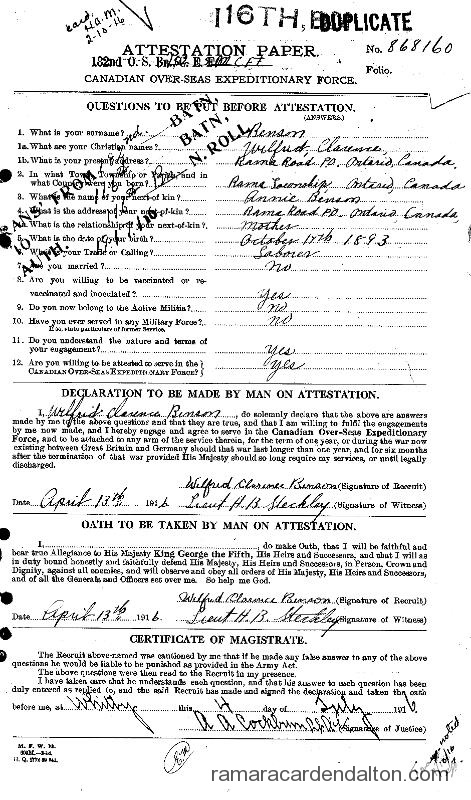 card H.A.M.
2-10-16
116TH, B
DUPLICATE
ATTESTATION PAPER.
No. 868160
182nd O. S. Bn. C. E. F.
Folio.
CANADIAN OVER-SEAS EXPEDITIONARY FORCE.
QUESTIONS TO BE PUT BEFORE ATTESTATION.
(ANSWERS.)
1. What is your surname? Benson
1a. What are your Christian names? Wilfrid, Clarence
1b. What is your present address? Rama Road P.O. Ontario, Canada
2. In what Town, Township or Parish, and in
what Country were you born? Rama Township Ontario, Canada
3. What is the name of your next-of-kin? Annie Benson
4. What is the address of your next-of-kin? Rama Road P.O. Ontario Canada,
4a. What is the relationship of your next-of-kin? Mother
5. What is the date of your birth? October 17th 1893
6. What is your Trade or Calling? Laborer
7. Are you married? no
8. Are you willing to be vaccinated or re-
vaccinated and inoculated? Yes
9. Do you now belong to the Active Militia? no
10. Have you ever served in any Military Force? no
If so, state particulars of former Service.
11. Do you understand the nature and terms of
your engagement? Yes
12. Are you willing to be attested to serve in the
CANADIAN OVER-SEAS EXPEDITIONARY FORCE? Yes
TRANS FROM
BATN
TO BATN,
AUTH: N. ROLL
DECLARATION TO BE MADE BY MAN ON ATTESTATION.
I, Wilfrid Clarence Benson, do solemnly declare that the above are answers
made by me to the above questions and that they are true, and that I am willing to fulfil the engagements
by me now made, and I hereby engage and agree to serve in the Canadian Over-Seas Expeditionary
Force, and to be attached to any arm of the service therein, for the term of one year, or during the war now
existing between Great Britain and Germany should that war last longer than one year, and for six months
after the termination of that war provided His Majesty should so long require my services, or until legally
discharged.
Wilfred Clarence Benson (Signature of Recruit)
Date April 13th 1916 Lieut H. B. Steckley (Signature of Witness)
OATH TO BE TAKEN BY MAN ON ATTESTATION.
I, do make Oath, that I will be faithful and
bear true Allegiance to His Majesty King George the Fifth, His Heirs and Successors, and that I will as
in duty bound honestly and faithfully defend His Majesty, His Heirs and Successors, in Person, Crown and
Dignity, against all enemies, and will observe and obey all orders of His Majesty, His Heirs and Successors,
and of all the Generals and Officers set over me. So help me God.
Wilfred Clarence Benson (Signature of Recruit)
Date April 13th 1916 Lieut H. B. Steckley (Signature of Witness)
CERTIFICATE OF MAGISTRATE.
The Recruit above-named was cautioned by me that if he made any false answer to any of the above
questions he would be liable to be punished as provided in the Army Act.
The above questions were then read to the Recruit in my presence.
I have taken care that he understands each question, and that his answer to each question has been
duly entered as replied to, and the said Recruit has made and signed the declaration and taken the oath
before me, at Whitby this 4 day of July 1916
A A Cockburn (Signature of Justice)
M. F. W. 23.
noted
ramaracardendalton.com/